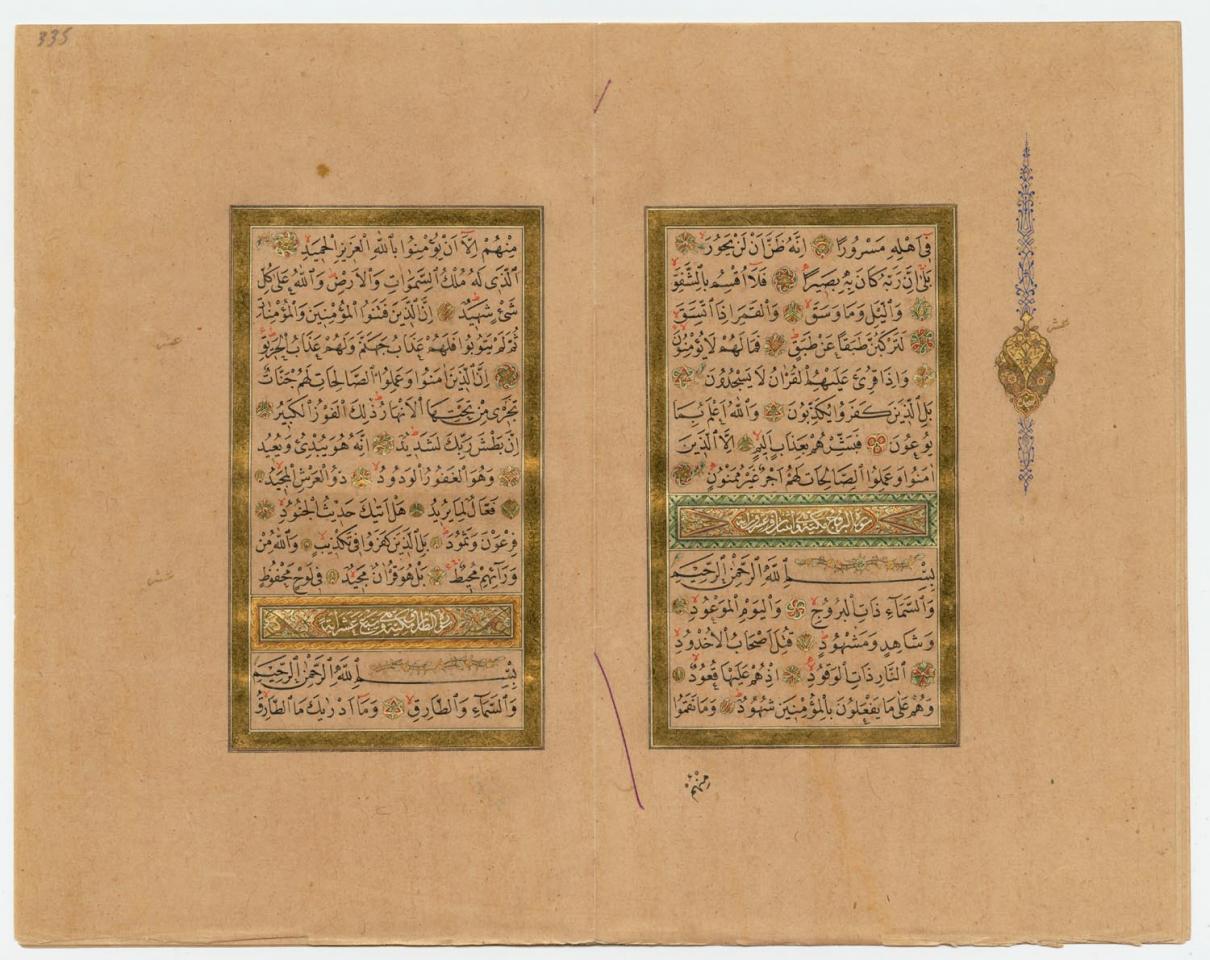 فِى اَهْلِهِ مَسْرُورًا اِنَّهُ ظَنَّ اَنْ لَنْ يَحُورَ
بَلٰى اِنَّ رَبَّهُ كَانَ بِهِ بَصِيرًا فَلَا اُقْسِمُ بِالشَّفَقِ
وَالَّيْلِ وَمَا وَسَقَ وَالْقَمَرِ اِذَا اتَّسَقَ
لَتَرْكَبُنَّ طَبَقًا عَنْ طَبَقٍ فَمَا لَهُمْ لَا يُؤْمِنُونَ
وَاِذَا قُرِئَ عَلَيْهِمُ الْقُرْاٰنُ لَا يَسْجُدُونَ
بَلِ الَّذِينَ كَفَرُوا يُكَذِّبُونَ وَاللّٰهُ اَعْلَمُ بِمَا
يُوعُونَ فَبَشِّرْهُمْ بِعَذَابٍ اَلِيمٍ اِلَّا الَّذِينَ
اٰمَنُوا وَعَمِلُوا الصَّالِحَاتِ لَهُمْ اَجْرٌ غَيْرُ مَمْنُونٍ
سورة البروج مكية وهي اثنان وعشرون اية
بِسْمِ اللّٰهِ الرَّحْمٰنِ الرَّحِيمِ
وَالسَّمَاءِ ذَاتِ الْبُرُوجِ وَالْيَوْمِ الْمَوْعُودِ
وَشَاهِدٍ وَمَشْهُودٍ قُتِلَ اَصْحَابُ الْاُخْدُودِ
اَلنَّارِ ذَاتِ الْوَقُودِ اِذْ هُمْ عَلَيْهَا قُعُودٌ
وَهُمْ عَلٰى مَا يَفْعَلُونَ بِالْمُؤْمِنِينَ شُهُودٌ وَمَا نَقَمُوا
منهم
عشر
335
مِنْهُمْ اِلَّا اَنْ يُؤْمِنُوا بِاللّٰهِ الْعَزِيزِ الْحَمِيدِ
اَلَّذِى لَهُ مُلْكُ السَّمٰوَاتِ وَالْاَرْضِ وَاللّٰهُ عَلٰى كُلِّ
شَىْءٍ شَهِيدٌ اِنَّ الَّذِينَ فَتَنُوا الْمُؤْمِنِينَ وَالْمُؤْمِنَاتِ
ثُمَّ لَمْ يَتُوبُوا فَلَهُمْ عَذَابُ جَهَنَّمَ وَلَهُمْ عَذَابُ الْحَرِيقِ
اِنَّ الَّذِينَ اٰمَنُوا وَعَمِلُوا الصَّالِحَاتِ لَهُمْ جَنَّاتٌ
تَجْرِى مِنْ تَحْتِهَا الْاَنْهَارُ ذٰلِكَ الْفَوْزُ الْكَبِيرُ
اِنَّ بَطْشَ رَبِّكَ لَشَدِيدٌ اِنَّهُ هُوَ يُبْدِئُ وَيُعِيدُ
وَهُوَ الْغَفُورُ الْوَدُودُ ذُو الْعَرْشِ الْمَجِيدُ
فَعَّالٌ لِمَا يُرِيدُ هَلْ اَتٰيكَ حَدِيثُ الْجُنُودِ
فِرْعَوْنَ وَثَمُودَ بَلِ الَّذِينَ كَفَرُوا فِى تَكْذِيبٍ وَاللّٰهُ مِنْ
وَرَائِهِمْ مُحِيطٌ بَلْ هُوَ قُرْاٰنٌ مَجِيدٌ فِى لَوْحٍ مَحْفُوظٍ
سورة الطارق مكية وهي سبع عشر اية
بِسْمِ اللّٰهِ الرَّحْمٰنِ الرَّحِيمِ
وَالسَّمَاءِ وَالطَّارِقِ وَمَا اَدْرٰيكَ مَا الطَّارِقُ
عشر
عشر